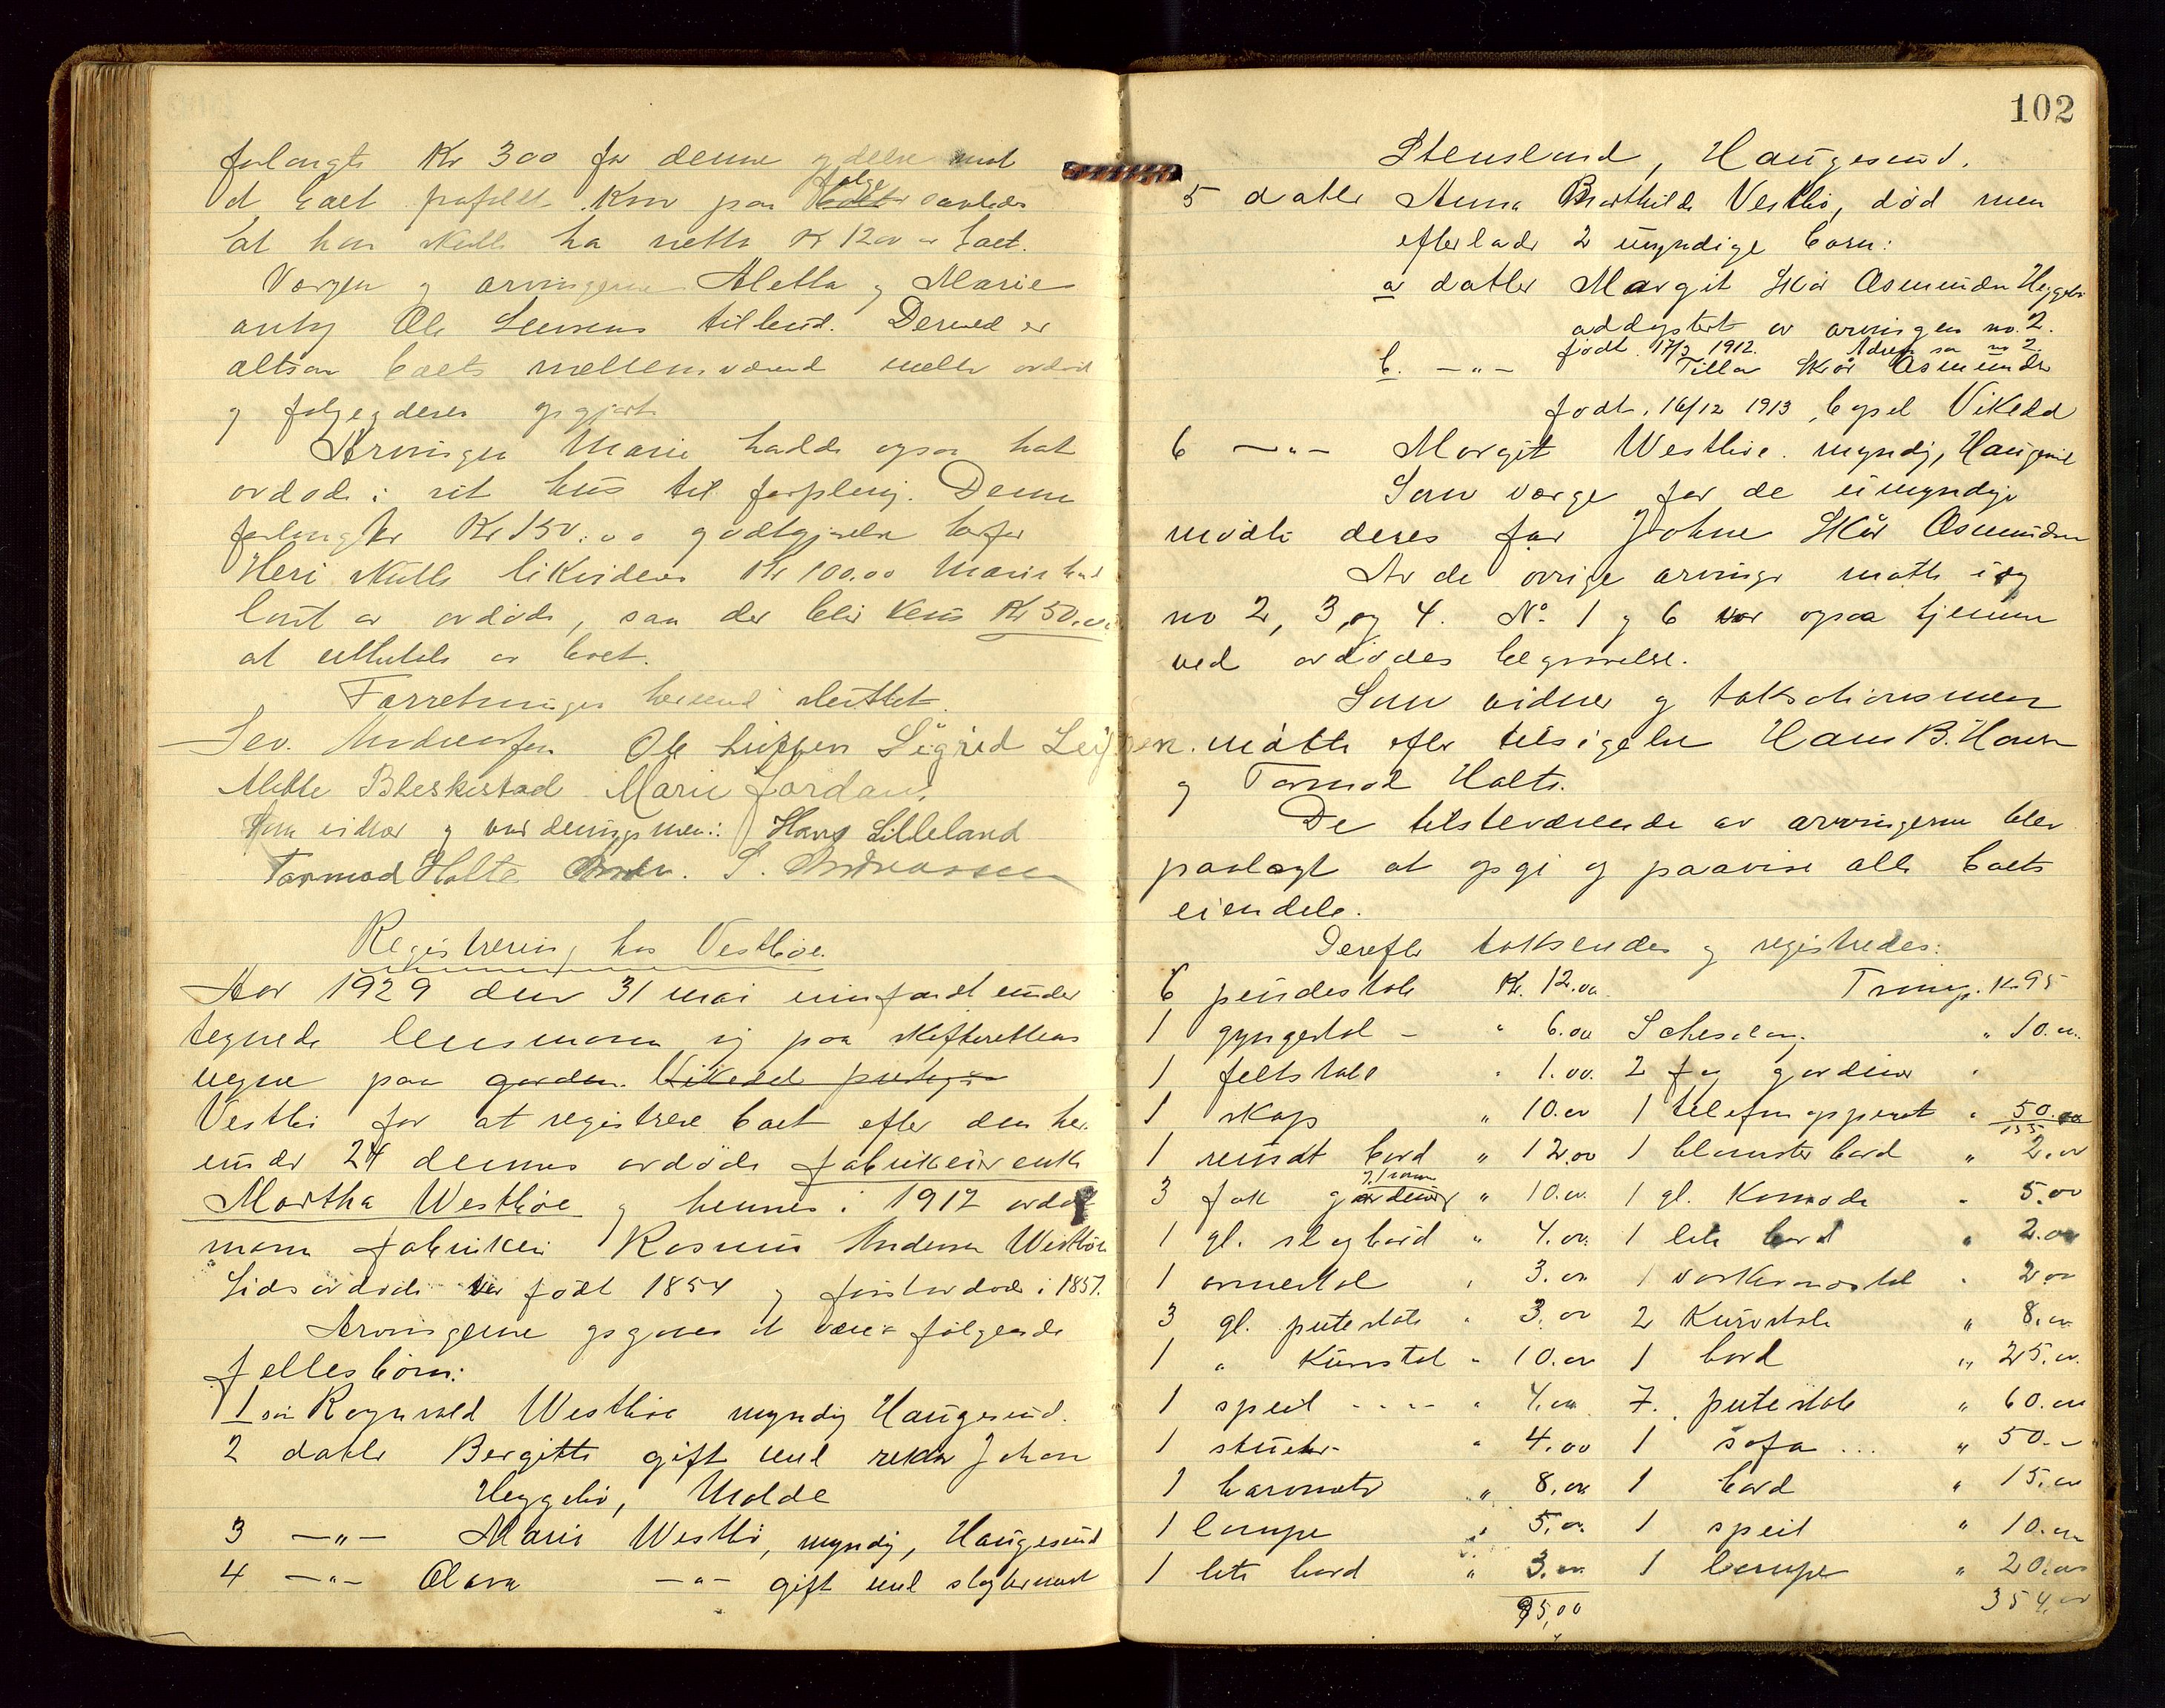 forlangte Kr 300 for denne ydelse mot
at boet frafaldt krav paa følge saaledes
at han skulde ha netto Kr 1200 av boet.
Vergen og arvingerne Mette og Marie
antog Ole Leversens tilbud. Dermed er
altsaa boets mellemværende mellem avdøde
og følgeyderen opgjort
Arvingen Marie hadde ogsaa hat
avdøde i sit hus til forpleining. Denne
forlangte Kr 150.00 godtgjørelse herfor
Heri skulle likvideres Kr 100.00 Marie hadde
laant av avdøde, saa der blir kun Kr 50.00
at utbetale av boet.
Forretningen hermed sluttet.
Sev. Andreassen Ole Sigrid
Mette Bleskestad Marie Jordan.
Som vidner og vurderingsmen: Hans Lilleland
Tormod Holte S. Andreassen
Registrering hos Vestbøe.
Aar 1929 den 31 mai innfandt under
tegnede lensmann sig paa skifterettens
vegne paa garden Vikedal prestegaar
Vestbø for at registrere boet efter den her
under 24 dennes avdøde fabrikeier enke
Martha Westbøe og hennes i 1912 avdøde
mann fabrikeier Rasmus Andersen Westbøe
Sidstavdøde var født 1854 og førstavdøde i 1857.
Arvingerne opgaves at være følgende
fellesbørn:
1 søn Ragnvald Westbøe myndig Haugesund.
2 datter Bergitte gift med rektor Johan
Heggebø, Molde
3 —"— Marie Westbø, myndig, Haugesund
4 —"— Olava —"— gift med slagtermest
102
Stensland, Haugesund.
5 datter Anna Barthilde Vestbø, død men
efterlader 2 umyndige barn:
a datter Margit Skår Osmundsen Heggebø
addoptert av arvingen no. 2.
født 17/3 1912. Adresse som no 2.
b. —"— Tilla Skår Osmundsen
født. 16/12 1913, bopel Vikedal
6 —"— Margit Westbøe. myndig, Haugesund
Som verge for de umyndige
møtte deres far Johne Skår Osmundsen
Av de øvrige arvinger møtte idag
no 2, 3, og 4. No 1 og 6 var ogsaa hjemme
ved avdødes begravelse.
Som vidner og takstionsmen
møtte efter tilsigelse Hans B.
og Tormod Holte.
De tilstedeværende av arvingerne blev
paalagt at opgi og paavise alle boets
eiendele.
Derefter takseredes og registredes:
6 pindestole Kr. 12.00 Transp. Kr 95
1 gyngestol - " 6.00 Scheselong " 10.00
1 feltstol " 1.00. 2 fag gardiner "
1 skap " 10.00 1 telefonapperat " 50.00
155
1 rundt bord " 12.00 1 blomsterbord " 2.00
3 fak gardiner " 10.00 1 gl. Komode " 5.00
1 gl. slagbord " 4.00 1 lite bord " 2.00
1 armestol " 3.00 1 vaskemastol " 2.00
3 gl. putestole " 3.00 2 Kurvstole " 8.00
1 " Kurvstol " 10.00 1 bord " 25.00
1 speil - - - - " 4.00 7. putestole " 60.00
1 stueur " 4.00 1 sofa ... " 50.-
1 barometer " 8.00 1 bord " 15.00
1 lampe " 5.00 1 speil " 10.00
1 lite bord " 3.00 1 lampe " 20.00
95,00 354,00